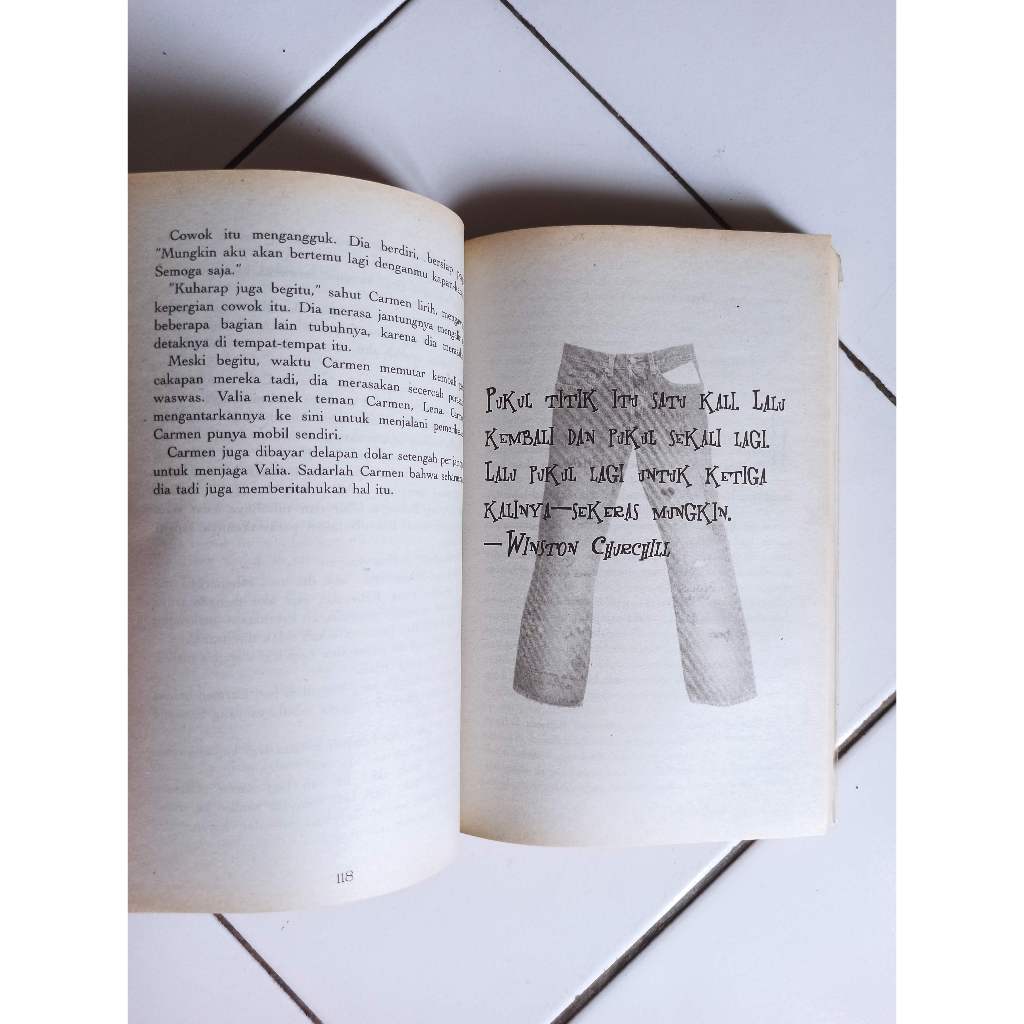 Cowok itu mengangguk. Dia berdiri, bersiap
"Mungkin aku akan bertemu lagi denganmu
Semoga saja."
"Kuharap juga begitu," sahut Carmen lirih,
kepergian cowok itu. Dia merasa jantungnya
beberapa bagian lain tubuhnya, karena dia
detaknya di tempat-tempat itu.
Meski begitu, waktu Carmen memutar kembali
cakapan mereka tadi, dia merasakan secercah
waswas. Valia nenek teman Carmen, Lena.
mengantarkannya ke sini untuk menjalani
Carmen punya mobil sendiri.
Carmen juga dibayar delapan dolar setengah
untuk menjaga Valia. Sadarlah Carmen bahwa
dia tadi juga memberitahukan hal itu.
118
Pukul titik itu satu kali. Lalu
kembali dan pukul sekali lagi.
Lalu pukul lagi untuk ketiga
kalinya—sekeras mungkin.
—Winston Churchill